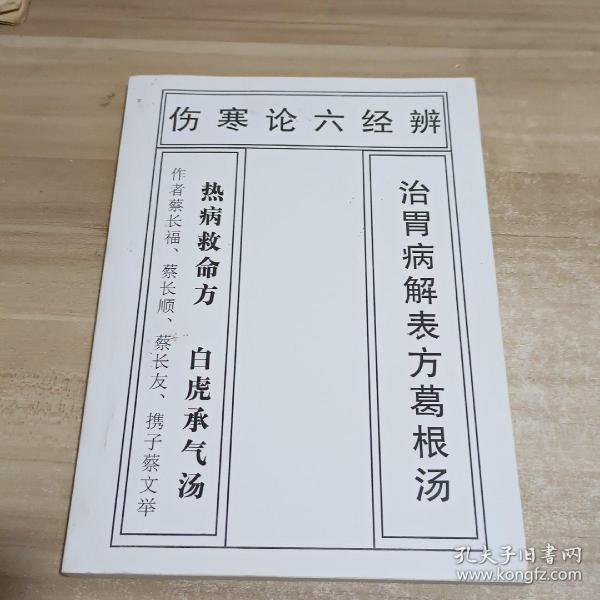 伤寒论六经辨
治胃病解表方葛根汤
热病救命方 白虎承气汤
作者蔡长福、蔡长顺、蔡长友、携子蔡文举
孔夫子旧书网
www.kongfz.com